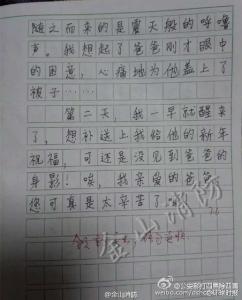 随之而来的是震天般的呼噜
声。我想起了爸爸刚才眼中
的困意，心痛地为他盖上了
被子……
第二天，我一早就醒来
了，想补送上我给他的新年
祝福，可还是没见到爸爸的
身影！唉，我亲爱的爸爸，
您可真是太辛苦了
金山消防
@金山消防